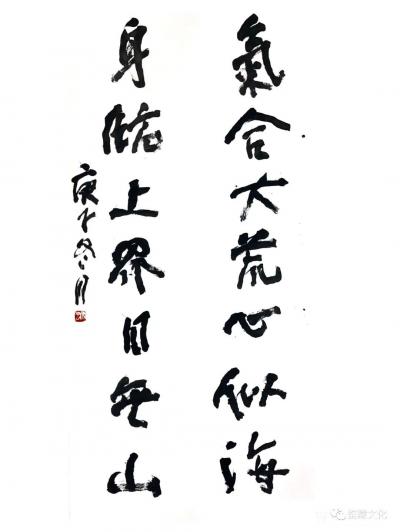 氣合大荒心似海
身上界目無山
庚子冬月
文化